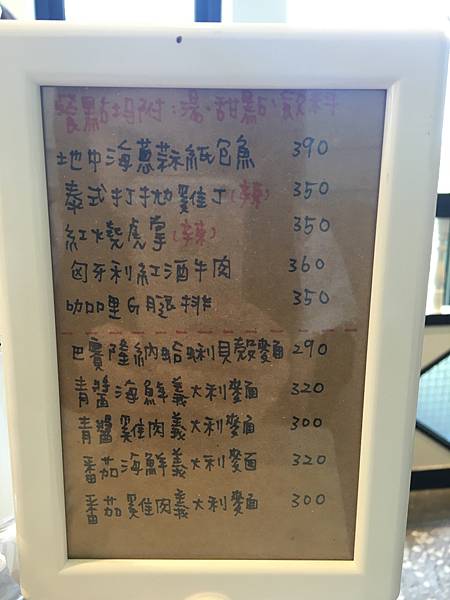 餐點均附:湯、甜點、飲料
地中海蔥蒜紙包魚 390
泰式打拋雞丁(辣) 350
紅燒虎掌(辣) 350
匈牙利紅酒牛肉 360
咖哩G腿排 350
巴賽隆納蛤蜊貝殼麵 290
青醬海鮮義大利麵 320
青醬雞肉義大利麵 300
番茄海鮮義大利麵 320
番茄雞肉義大利麵 300